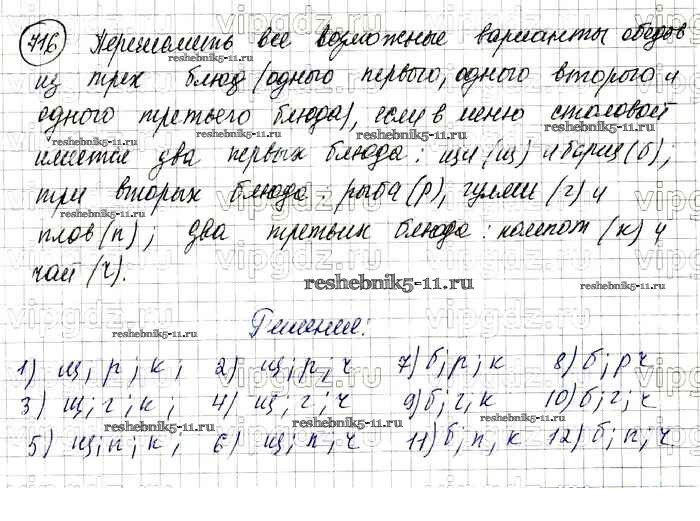 716 Перечислить все возможные варианты обедов
из трех блюд (одного первого, одного второго и
одного третьего блюда), если в меню столовой
имеется два первых блюда: щи (щ) и борщ (б);
три вторых блюда: рыба (р), гуляш (г) и
плов (п); два третьих блюда: компот (к) и
чай (ч).
reshebnik5-11.ru
Решение:
1) щ; р; к; 2) щ; р; ч 7) б; р; к 8) б; р ч
3) щ; г; к; 4) щ; г; ч 9) б; г; к 10) б; г; ч
5) щ; п; к; 6) щ; п; ч 11) б; п; к 12) б; п; ч
vipgdz.ru